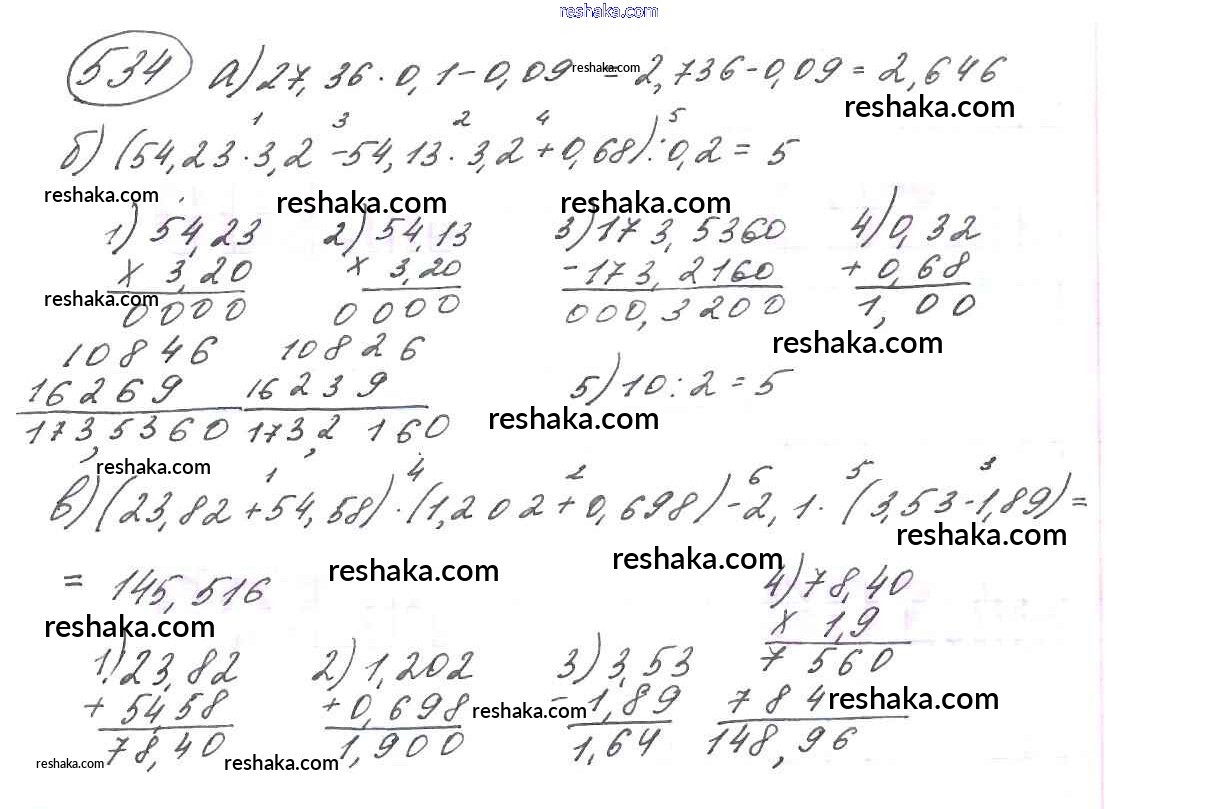 reshaka.com
534 а) 27,36 · 0,1 - 0,09 = 2,736 - 0,09 = 2,646
reshaka.com
reshaka.com
1 3 2 4 5
б) (54,23 · 3,2 - 54,13 · 3,2 + 0,68) : 0,2 = 5
reshaka.com reshaka.com reshaka.com
1) 54,23 2) 54,13 3) 173,5360 4) 0,32
x 3,20 x 3,20 - 173,2160 + 0,68
reshaka.com
0000 0000 000,3200 1,00
reshaka.com
10846 10826
16269 16239 5) 10 : 2 = 5
reshaka.com
173,5360 173,2160
reshaka.com
1 4 2 6 5 3
в) (23,82 + 54,58) · (1,202 + 0,698) - 2,1 · (3,53 - 1,89) =
reshaka.com
reshaka.com reshaka.com
= 145,516 4) 78,40
reshaka.com x 1,9
1) 23,82 2) 1,202 3) 3,53 7560
+ 54,58 + 0,698 - 1,89 784
reshaka.com reshaka.com
78,40 1,900 1,64 148,96
reshaka.com reshaka.com